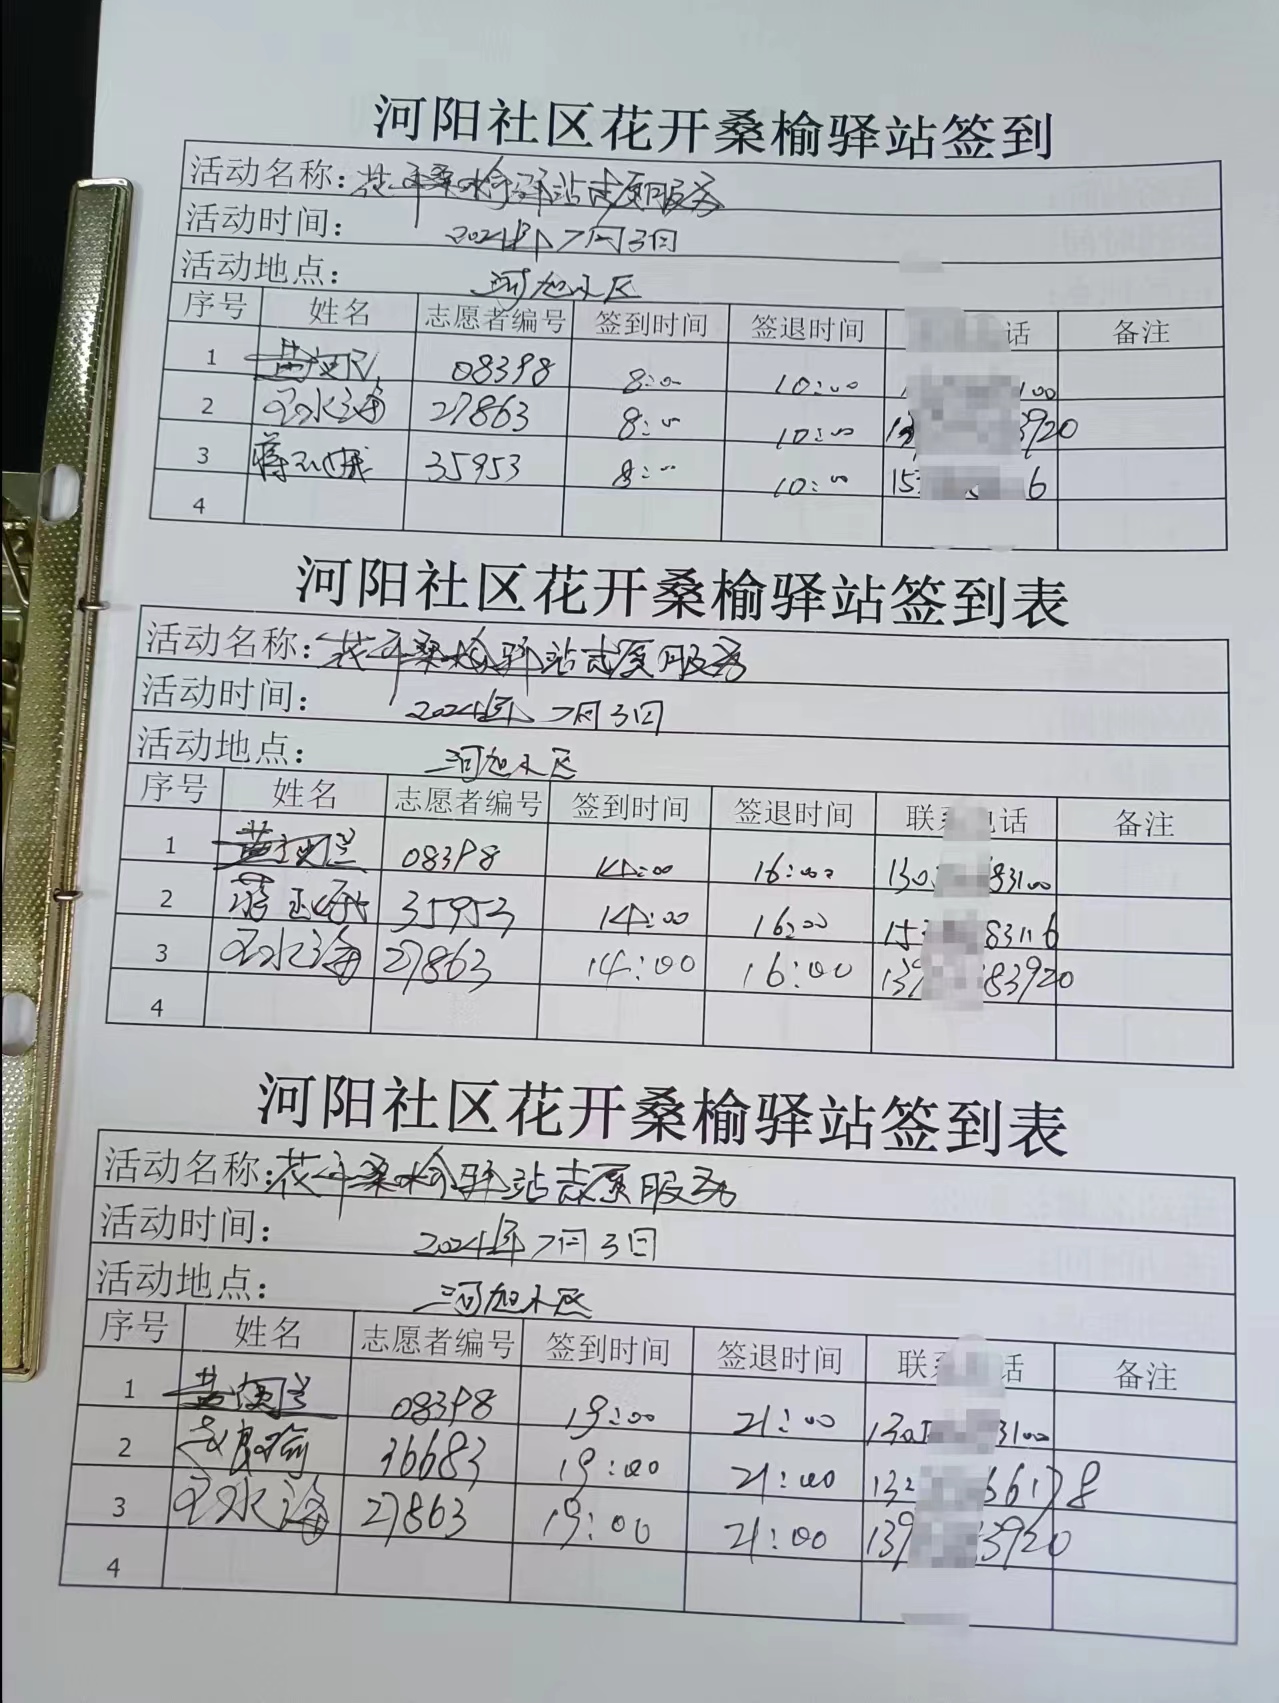 河阳社区花开桑榆驿站签到
活动名称：花开桑榆驿站志愿服务
活动时间： 2024年7月3日
活动地点： 河旭小区
序号 姓名 志愿者编号 签到时间 签退时间 话 备注
1 08398 8:00 10:00 100
2 27863 8:00 10:00 3920
3 35953 8:00 10:00 15 6
4
河阳社区花开桑榆驿站签到表
活动名称：花开桑榆驿站志愿服务
活动时间： 2024年7月3日
活动地点： 河旭小区
序号 姓名 志愿者编号 签到时间 签退时间 联系电话 备注
1 08398 14:00 16:00 130 83100
2 35953 14:00 16:00 15 83116
3 27863 14:00 16:00 139 83920
4
河阳社区花开桑榆驿站签到表
活动名称：花开桑榆驿站志愿服务
活动时间： 2024年7月3日
活动地点： 河旭小区
序号 姓名 志愿者编号 签到时间 签退时间 联系 话 备注
1 08398 19:00 21:00 130 3100
2 36683 19:00 21:00 132 66178
3 27863 19:00 21:00 139 3920
4